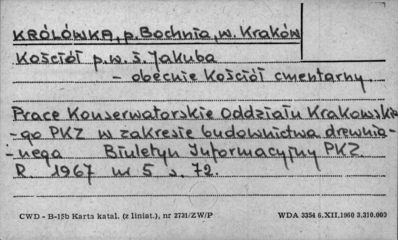 KRÓLÓWKA, p. Bochnia, w. Kraków
Kościół p.w. ś. Jakuba
- obecnie kościół cmentarny.
Prace Konserwatorskie Oddziału Krakowskie
-go PKZ w zakresie budownictwa drewnia-
-nego Biuletyn Informacyjny PKZ.
R. 1967 nr 5 s. 72.
CWD - B-15b Karta katal. (z liniat.), nr 2731/ZW/P
WDA 3354 6.XII.1960 3.210.000